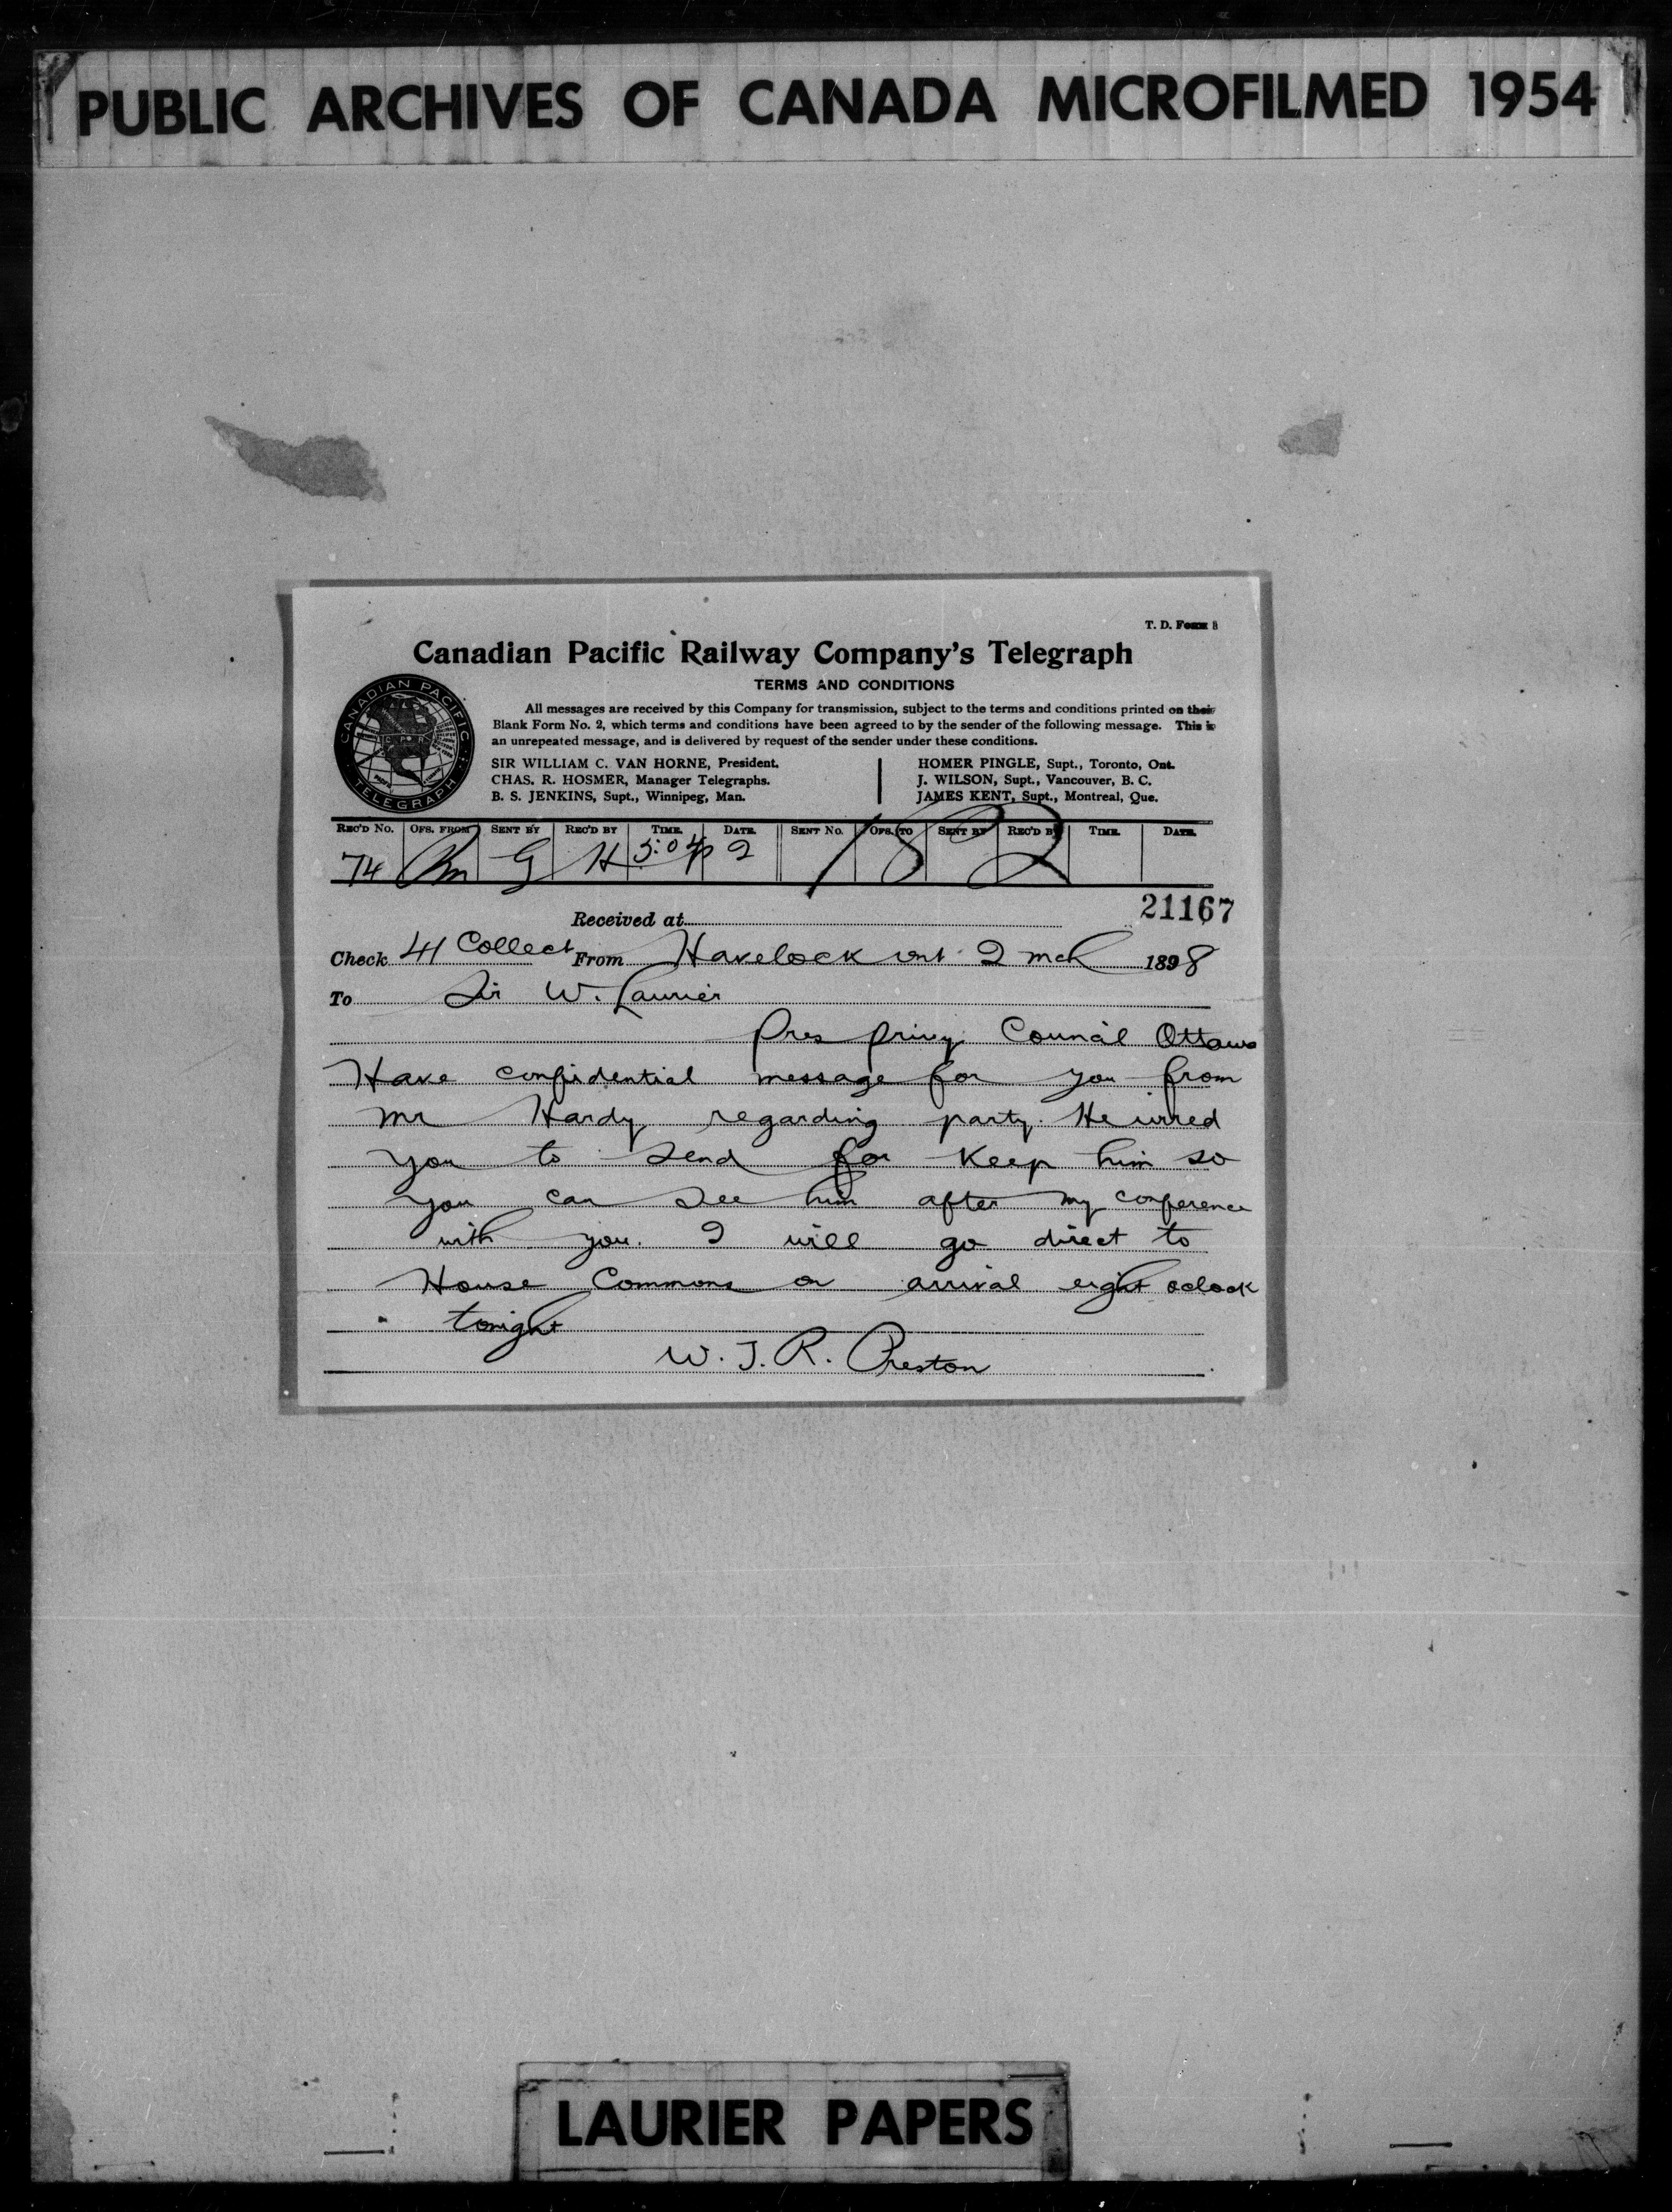 PUBLIC ARCHIVES OF CANADA MICROFILMED 1954
T. D. Form B
Canadian Pacific Railway Company's Telegraph
TERMS AND CONDITIONS
All messages are received by this Company for transmission, subject to the terms and conditions printed on their
Blank Form No. 2, which terms and conditions have been agreed to by the sender of the following message. This is
an unrepeated message, and is delivered by request of the sender under these conditions.
CANADIAN PACIFIC
TELEGRAPH
SIR WILLIAM C. VAN HORNE, President.
CHAS. R. HOSMER, Manager Telegraphs.
B. S. JENKINS, Supt., Winnipeg, Man.
HOMER PINGLE, Supt., Toronto, Ont.
J. WILSON, Supt., Vancouver, B. C.
JAMES KENT, Supt., Montreal, Que.
REC'D No. OFS. FROM SENT BY REC'D BY TIME. DATE. SENT No. OFS. TO SENT BY REC'D BY TIME. DATE.
74 G H 5:04p 2 182
21167
Received at
Check 41 Collect From Havelock Ont 2 mch 1898
To Sir W. Laurier
Pres privy Council Ottawa
Have confidential message for you from
mr Hardy regarding party. He wired
you to send for Keep him so
you can see him after my conference
with you. I will go direct to
House Commons on arrival eight oclock
tonight
W. J. R. Preston
LAURIER PAPERS